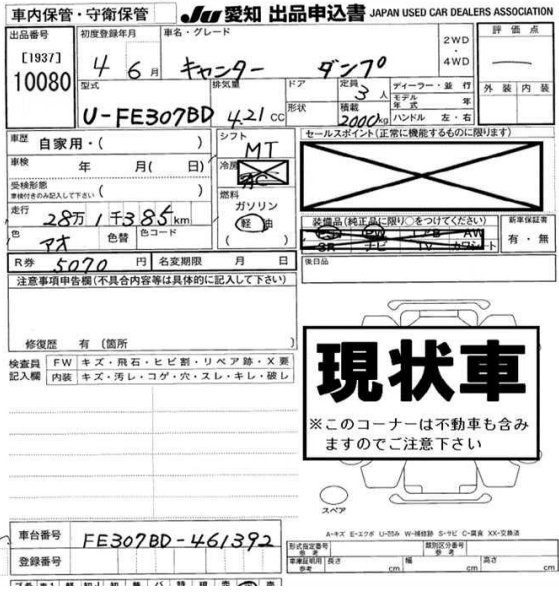 車内保管・守衛保管
JU 愛知 出品申込書 JAPAN USED CAR DEALERS ASSOCIATION
出品番号
[1937]
10080
初度登録年月
4 6月
車名・グレード
キャンター ダンプ
2WD
・
4WD
評価点
外装 内装
型式
U-FE307BD
排気量
4.21 CC
ドア
形状
定員
3人
積載
2000kg
ディーラー・並行
モデル年式 年
ハンドル 左・右
車歴 自家用・( )
車検 年 月( 日)
受検形態
車検付きのみ記入して下さい ( )
走行 28万1千385km
色 アオ 色替 色コード
シフト
MT
冷房
AC
燃料
ガソリン
軽油
セールスポイント(正常に機能するものに限ります)
装備品(純正品に限り○をつけてください)
PS PW エアB AW
SR ナビ TV カワシート
新車保証書
有・無
R券 5070円 名変期限 月 日
後日品
注意事項申告欄(不具合内容等は具体的に記入して下さい)
修復歴 有 〔箇所 〕
検査員記入欄
FW キズ・飛石・ヒビ割・リペア跡・X要
内装 キズ・汚レ・コゲ・穴・スレ・キレ・破レ
現状車
※このコーナーは不動車も含み
ますのでご注意下さい
スペア
A-キズ E-エクボ U-凹み W-補修跡 S-サビ C-腐食 XX-交換済
車台番号 FE307BD-461392
登録番号
形式指定番号
参考
類別区分番号
参考
車庫証明用
参考
長さ cm 幅 cm 高さ cm